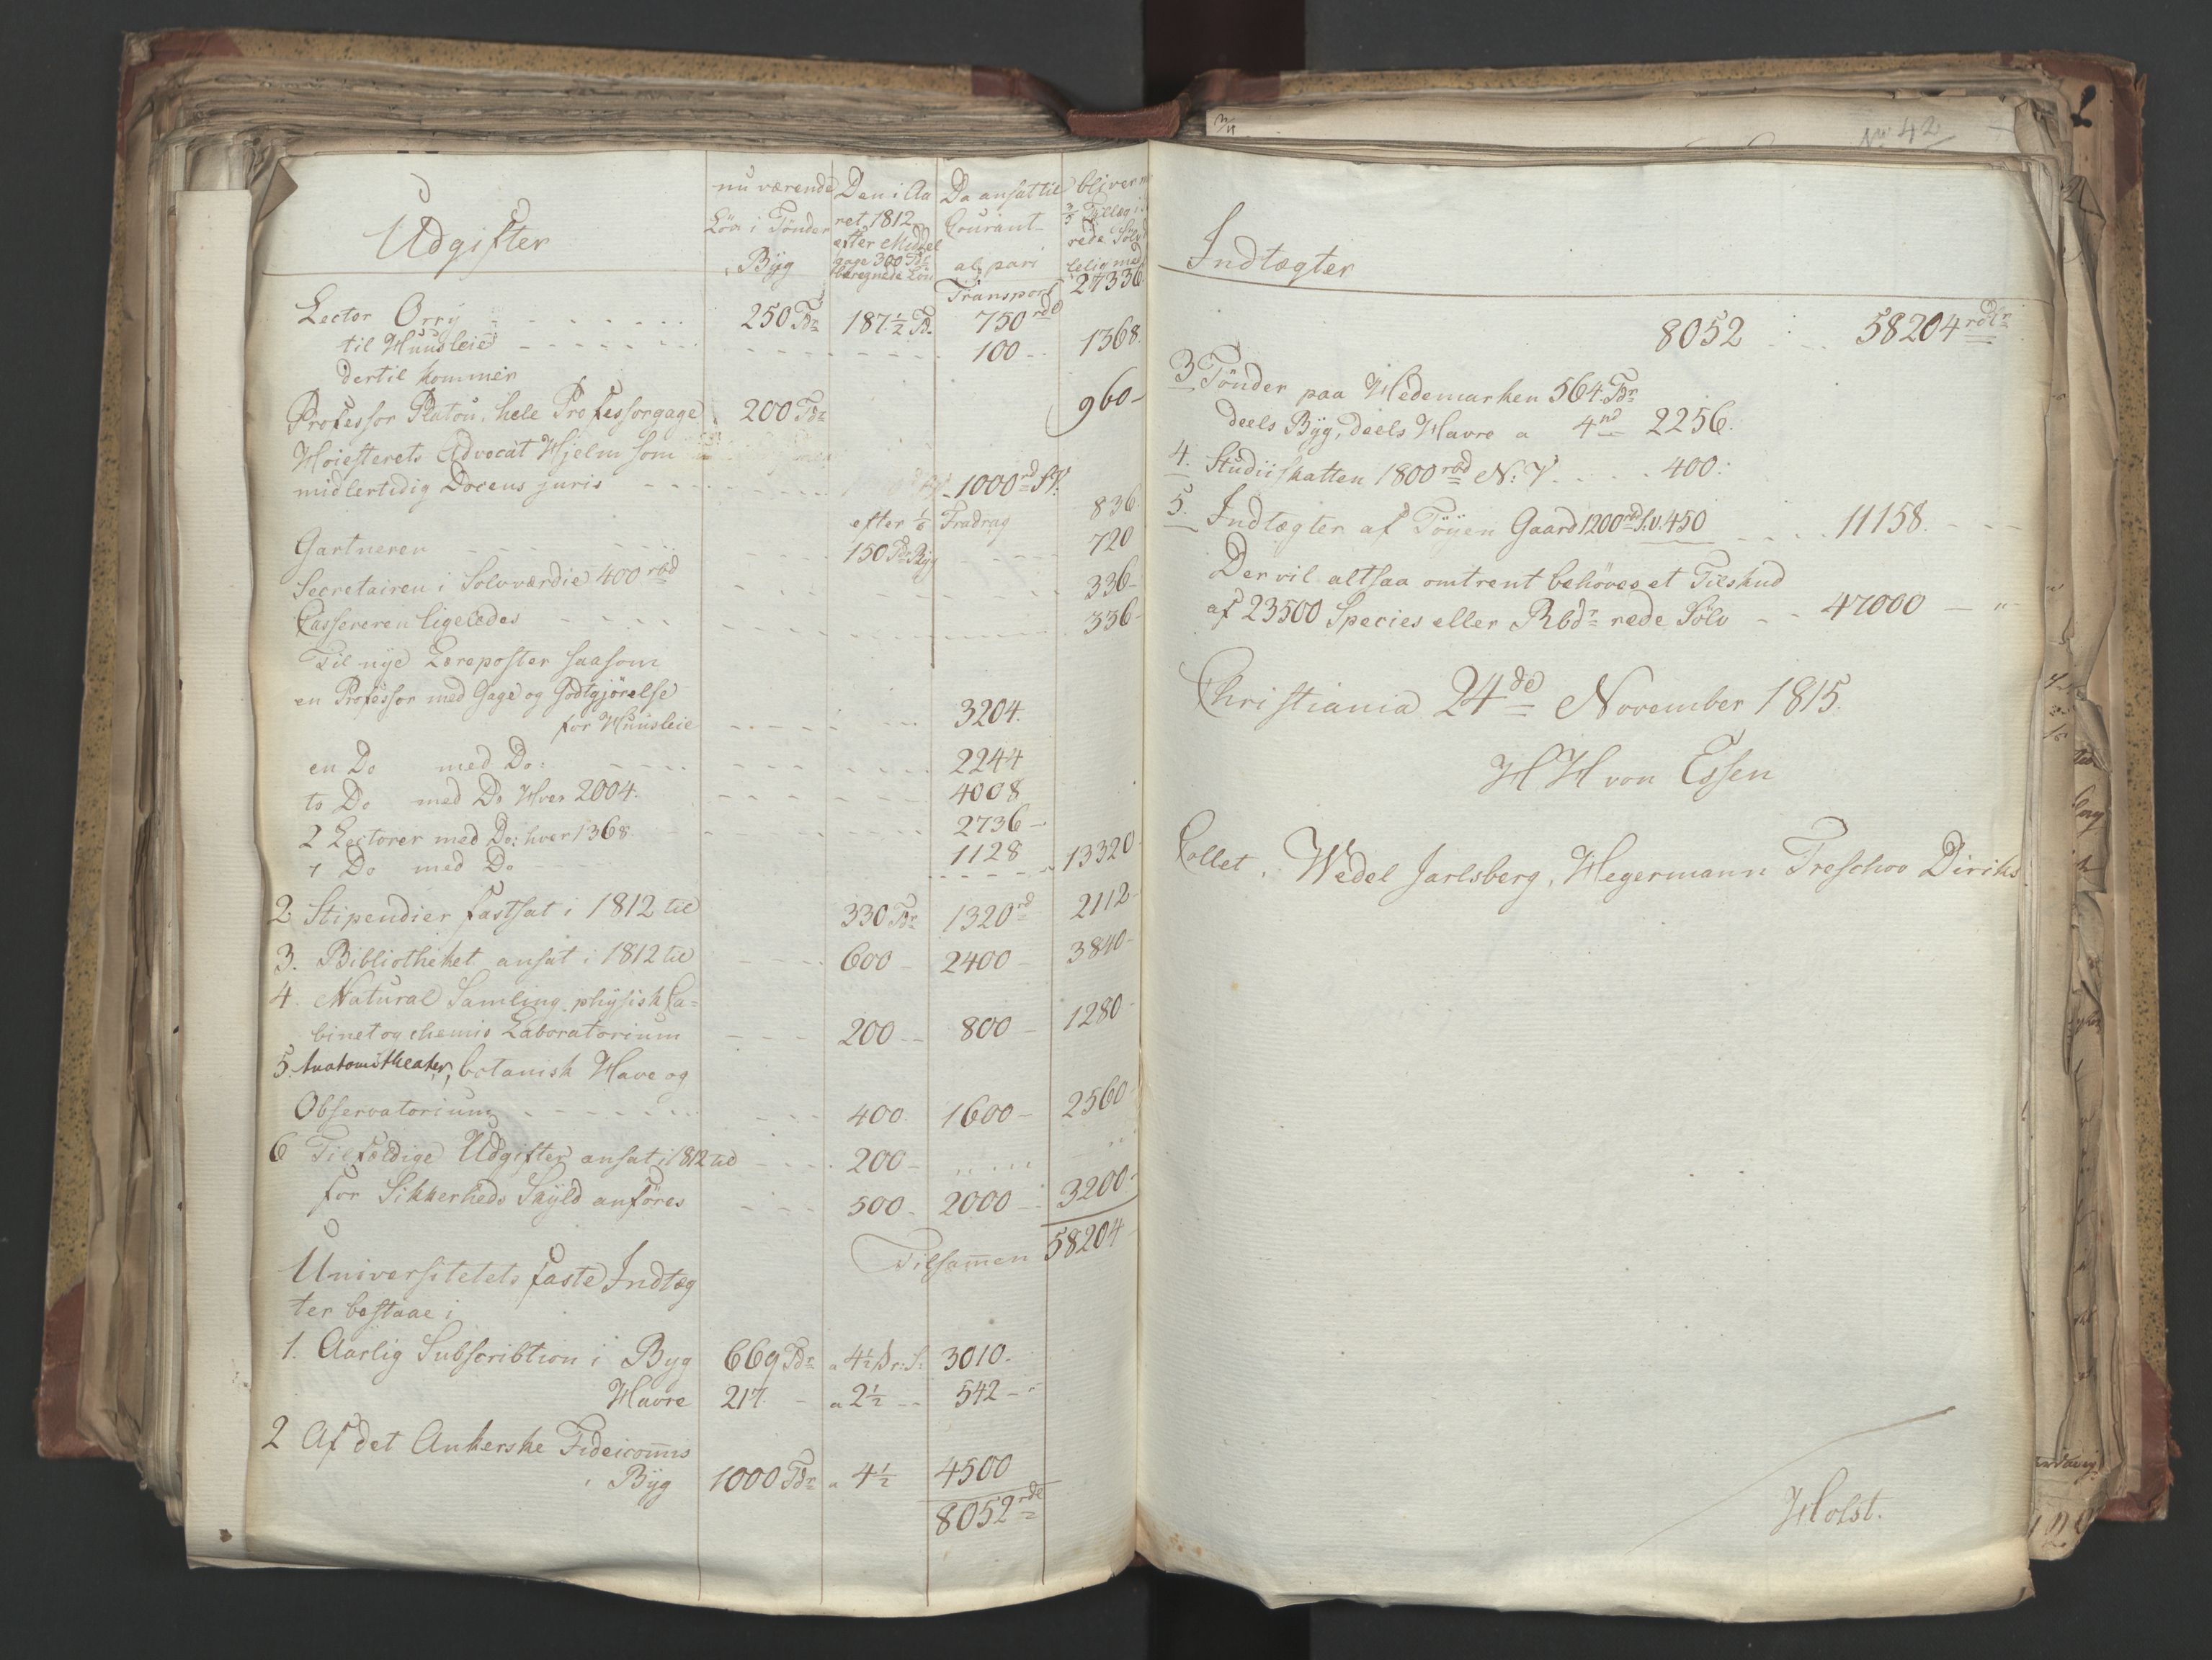 Udgifter
nu værende
Lön i Tönder
Byg
Den i Aa
ret 1812
efter Middel
gage 300 Tdr
beregnede Lön
Da ansat til
Courant
al pari
bliver m
3/5 Tillæg i
rede Sölv
Transport 27336
Lector Orry - - - 250 Tdr 187 1/2 Td. 750 rdl
til Huusleie - - - 100 - 1368.
dertil kommer
Professor Platou, hele Professorgage 200 Tdr 960 -
Höiesterets Advocat Hjelm som
midlertidig Docens juris - - - 1000 rd SV.
efter 1/6 Fradrag 836.
Gartneren - - - 150 Tdr Byg - - - 720
Secretairen i Solvværdie 400 rbd - - - 336 -
Cassereren ligeledes - - - 336 -
Til nye Læreposter saasom
en Professor med Gage og Godtgjörelse
for Huusleie - - - 3204.
en Do med Do: - - - 2244
to Do med Do Hver 2004. - - - 4008
2 Lectorer med Do: hver 1368. - - - 2736 -
1 Do med Do 1128 - - - 13320
2 Stipendier fastsat i 1812 til 330 Tdr 1320 rd 2112 -
3. Bibliotheket ansat i 1812 til - - - 600 - 2400 - 3840 -
4. Natural Samling, physisk Ca=
binet og chemis Laboratorium - - - 200 - - 800 - 1280 -
5. Anatomitheater, botanisk Have og
Observatorium - - - 400. 1600 - 2560
6 Tilfældige Udgifter ansat i 1812 til - - - 200 - " "
for Sikkerheds Skyld anföres - - - 500 - 2000 - 3200 -
Tilsam̅en 58204 -
Universitetets faste Indtæg
ter bestaae i
1. Aarlig Subscribtion i Byg 669 Tdr a 4 1/2 dr: S: 3010.
Havre 217. - a 2 1/2 - - 542 - "
2 Af det Ankerske Fideicom̅is
i Byg 1000 Tdr a 4 1/2 4500
8052 rdl
No 42
Indtægter
8052 - - 58204 rdlr
3 Tönder paa Hedemarken 564. Tdr
deels Byg, deels Havre a 4 rd 2256.
4. Studiiskatten 1800 rbd N: V. - - - 400.
5. Indtægter af Töyen Gaard 1200 rd S.V. 450 - - - 11158. - - -
Der vil altsaa omtrent behöves et Tilskud
af 23500 Species eller Rbdr rede Sölv - - 47000 - "
Christiania 24de November 1815.
H H von Essen
Collet. Wedel Jarlsberg, Hegermann Treschow Diriks
Holst.